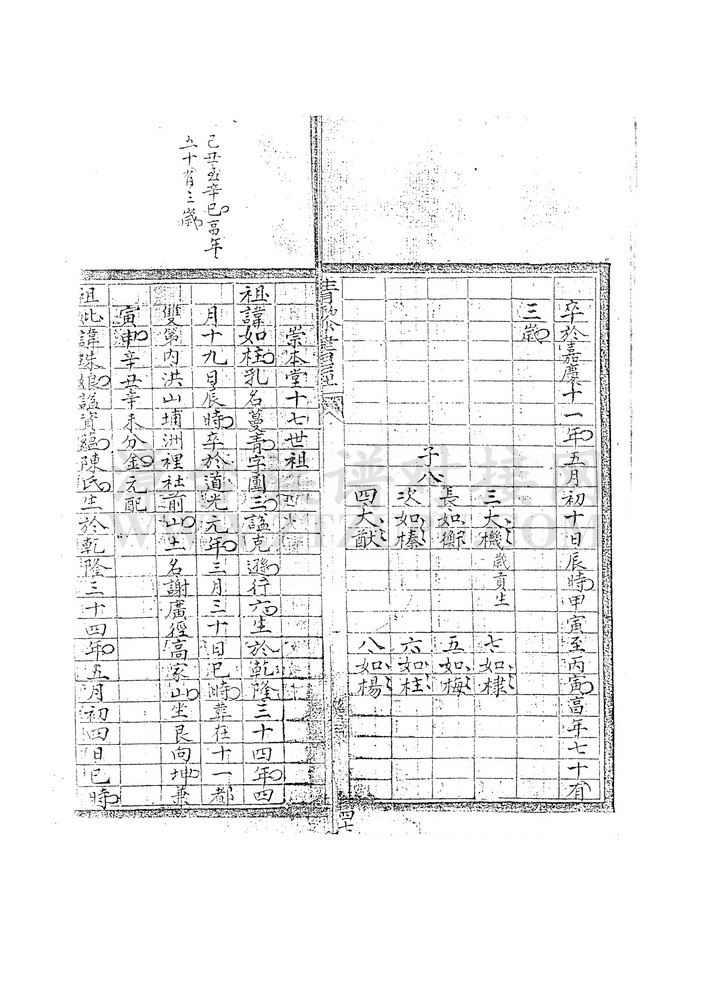 卒於嘉慶十一年五月初十日辰時甲寅至丙寅高年七十有
三歲
三大機歲貢生 七如棣
長如衡 五如梅
子八 次如榛 六如柱
四大猷 八如楊
四七
崇本堂十七世祖
祖諱如柱乳名蔓青字園三謚克遜行六生於乾隆三十四年四
月十九日辰時卒於道光元年三月三十日巳時葬在十一都
雙第內洪山埔洲裡社前山土名謝廣徑高家山坐艮向坤兼
寅申辛丑辛未分金元配
祖妣諱珠娘謚資蘊陳氏生於乾隆三十四年五月初四日巳時
己丑至辛巳高年
五十有三歲